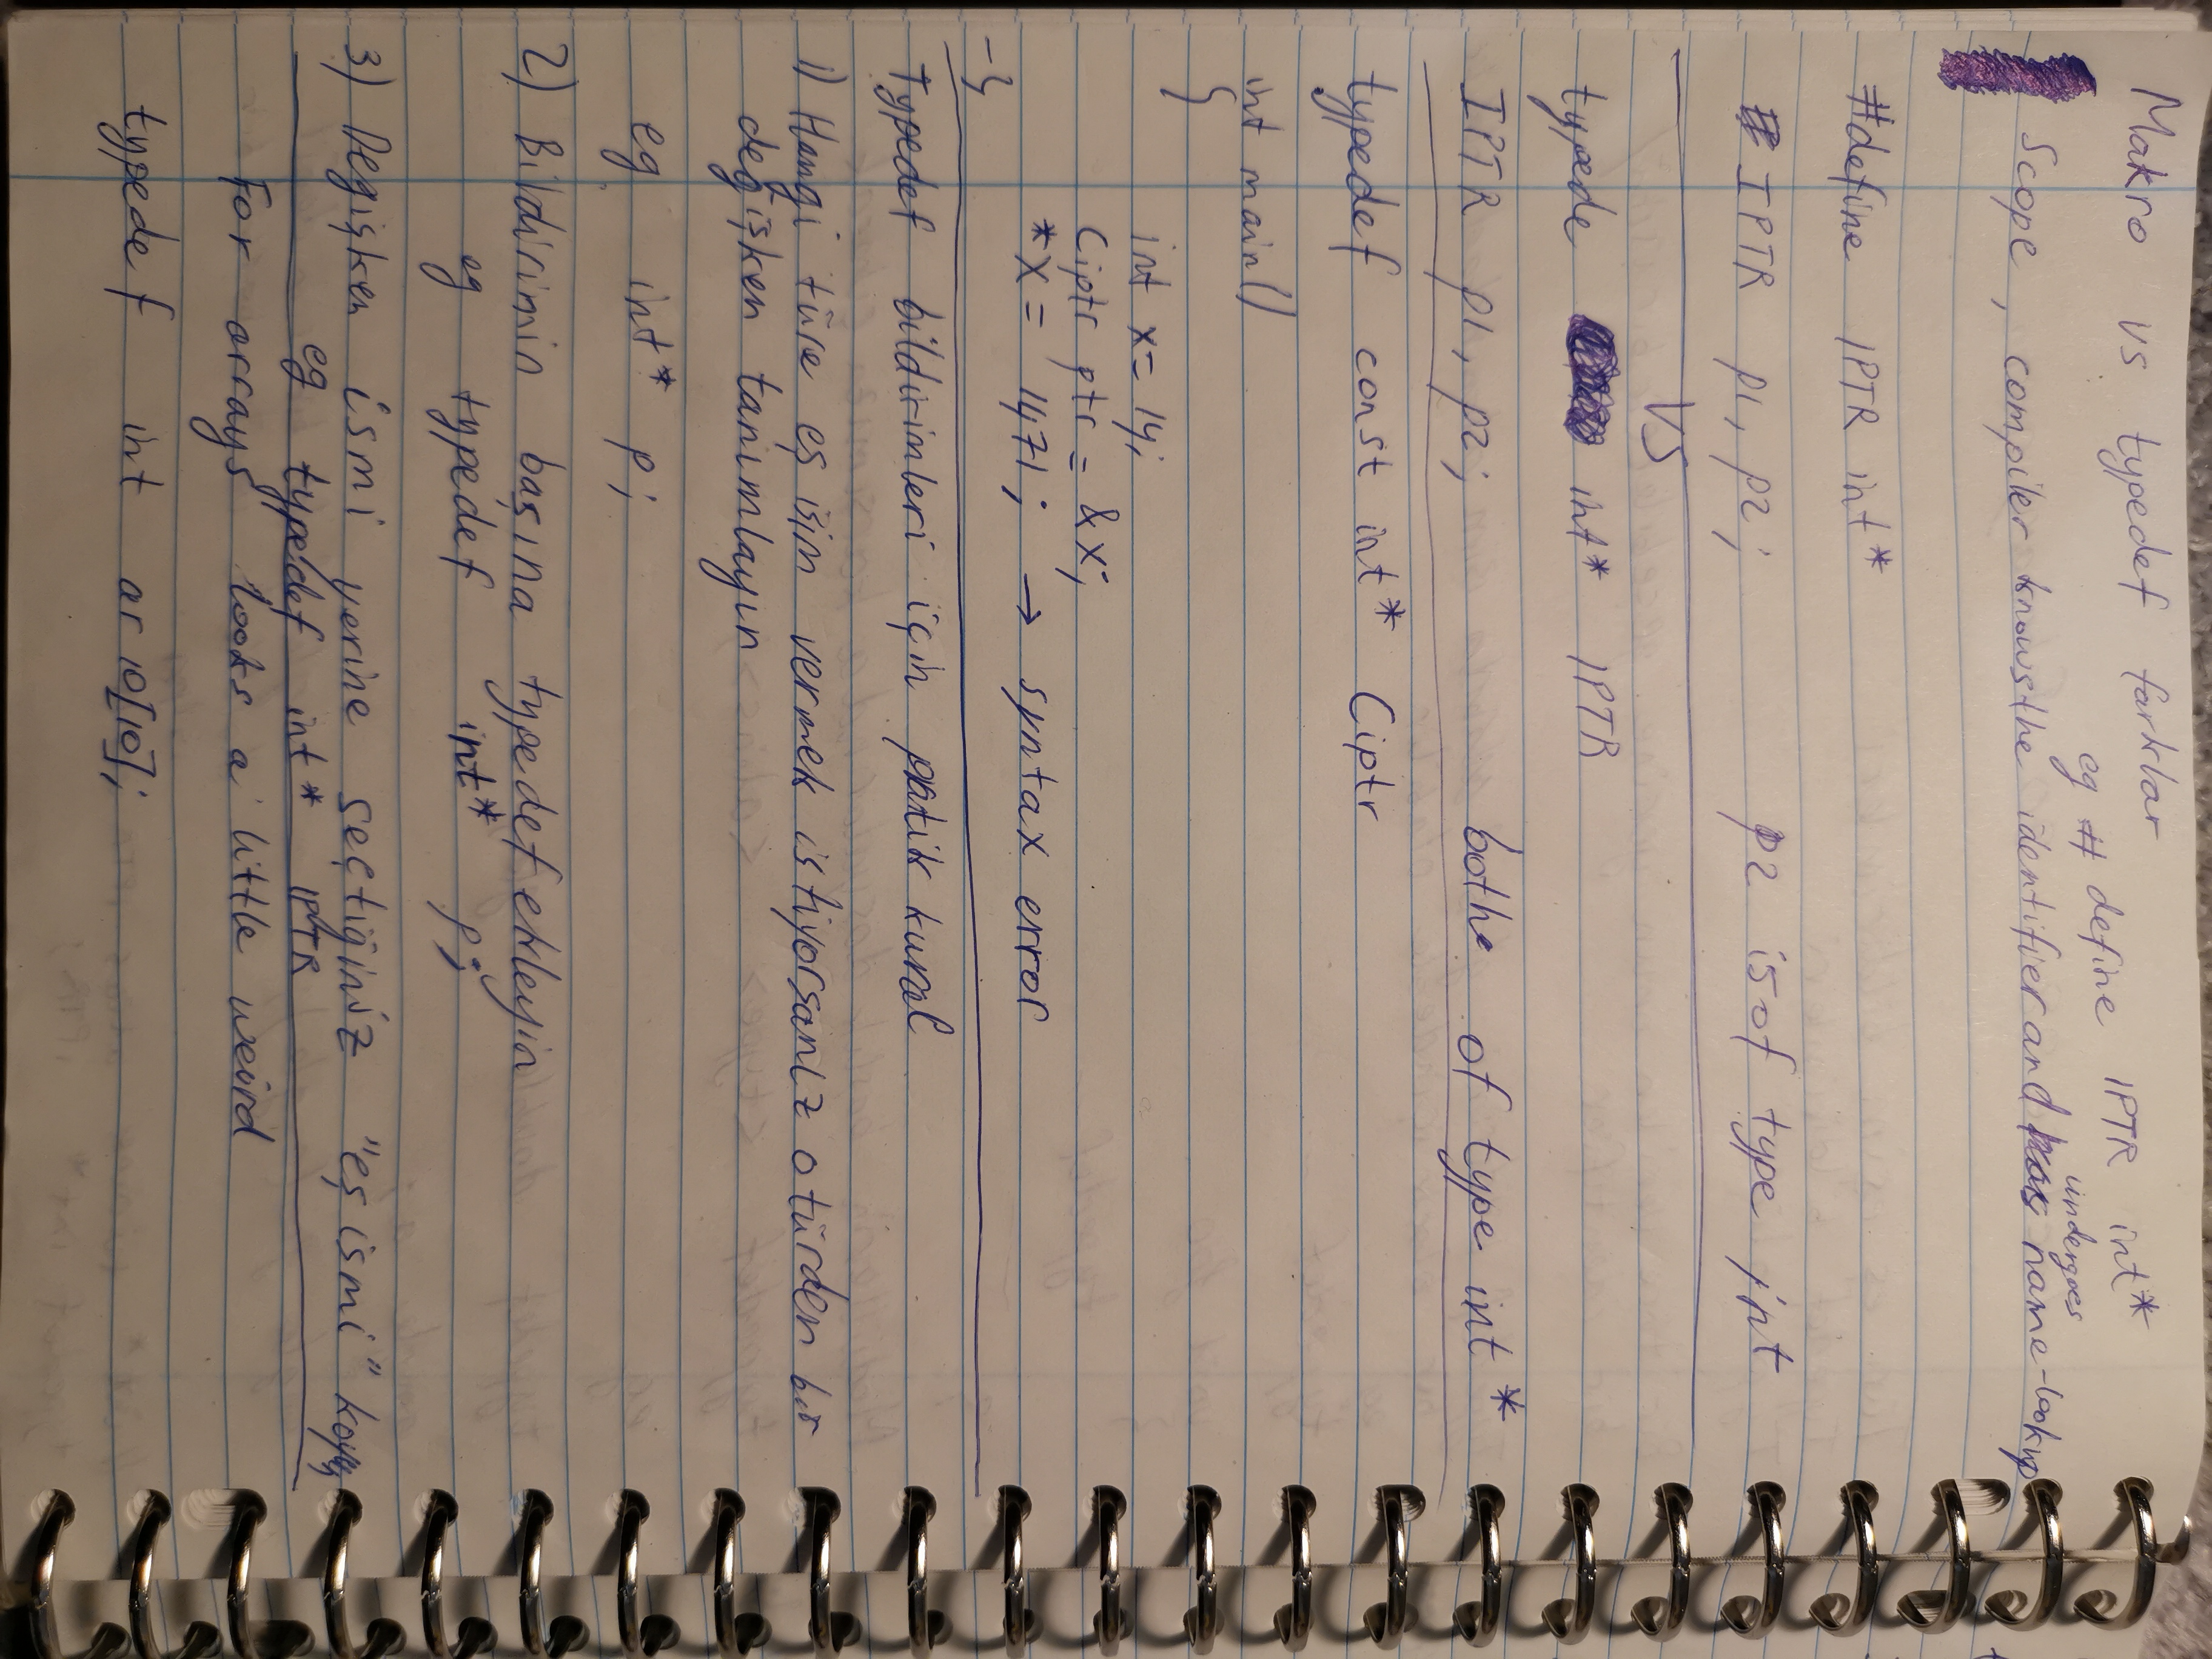 Makro vs typedef farklar
eg # define IPTR int*
undergoes
Scope, compiler knows the identifier and name-lookup
#define IPTR int*
IPTR p1, p2; p2 is of type int
VS
typede int* IPTR
IPTR p1, p2; both of type int*
typedef const int* Ciptr
int main()
{
int x = 14;
Ciptr ptr = &x;
*x = 1471; → syntax error
}
Typedef bildirimleri için pratik kural
1) Hangi türe eş isim vermek istiyorsanız o türden bir
değişken tanımlayın
eg int* p;
2) Bildirimin başına typedef ekleyin
eg typedef int* p;
3) Değişken ismi yerine seçtiğiniz "eş ismi" koyun
eg typedef int* IPTR
For arrays looks a little weird
typedef int ar10[10];